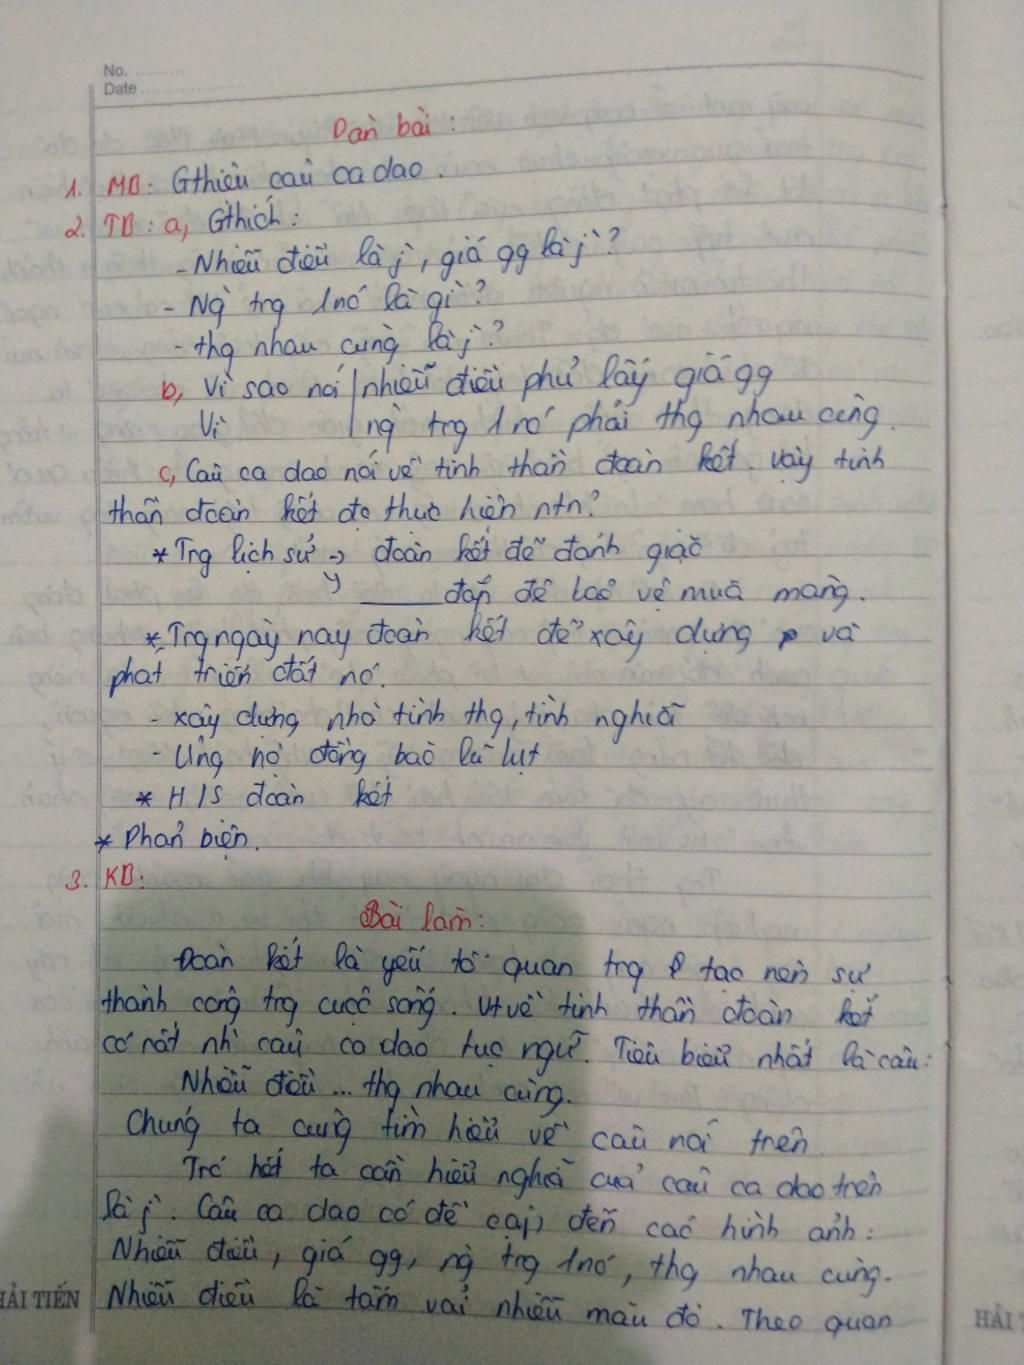 No. ..........
Date ....................
Dàn bài :
1. MB: Gthiệu câu ca dao.
2. TB: a, Gthích:
- Nhiễu điều là j`, giá gg là j`?
- Ng` trg 1 nc' là gì?
- thg nhau cùng là j`?
b, Vì sao nói nhiễu điều phủ lấy giá gg
Vì ng` trg 1 nc' phải thg nhau cùng.
c, Câu ca dao nói về tinh thần đoàn kết. Vậy tinh
thần đoàn kết đc thực hiện ntn?
* Trg lịch sử → đoàn kết để đánh giặc
___ đắp đê bảo vệ mùa màng.
* Trg ngày nay đoàn kết để xây dựng và
phát triển đất nc'.
- xây dựng nhà tình thg, tình nghĩa
- Ủng hộ đồng bào lũ lụt
* H/S đoàn kết
* Phản biện.
3. KB:
Bài làm:
Đoàn kết là yếu tố quan trg để tạo nên sự
thành công trg cuộc sống. Vt về tinh thần đoàn kết
có rất nh` câu ca dao tục ngữ. Tiêu biểu nhất là câu:
Nhiễu điều ... thg nhau cùng.
Chúng ta cùng tìm hiểu về câu nói trên.
Trc' hết ta cần hiểu nghĩa của câu ca dao trên
là j`. Câu ca dao có đề cập đến các hình ảnh:
Nhiễu điều, giá gg, ng` trg 1 nc', thg nhau cùng.
HẢI TIẾN Nhiễu điều là tấm vải nhiễu màu đỏ. Theo quan
HẢI T